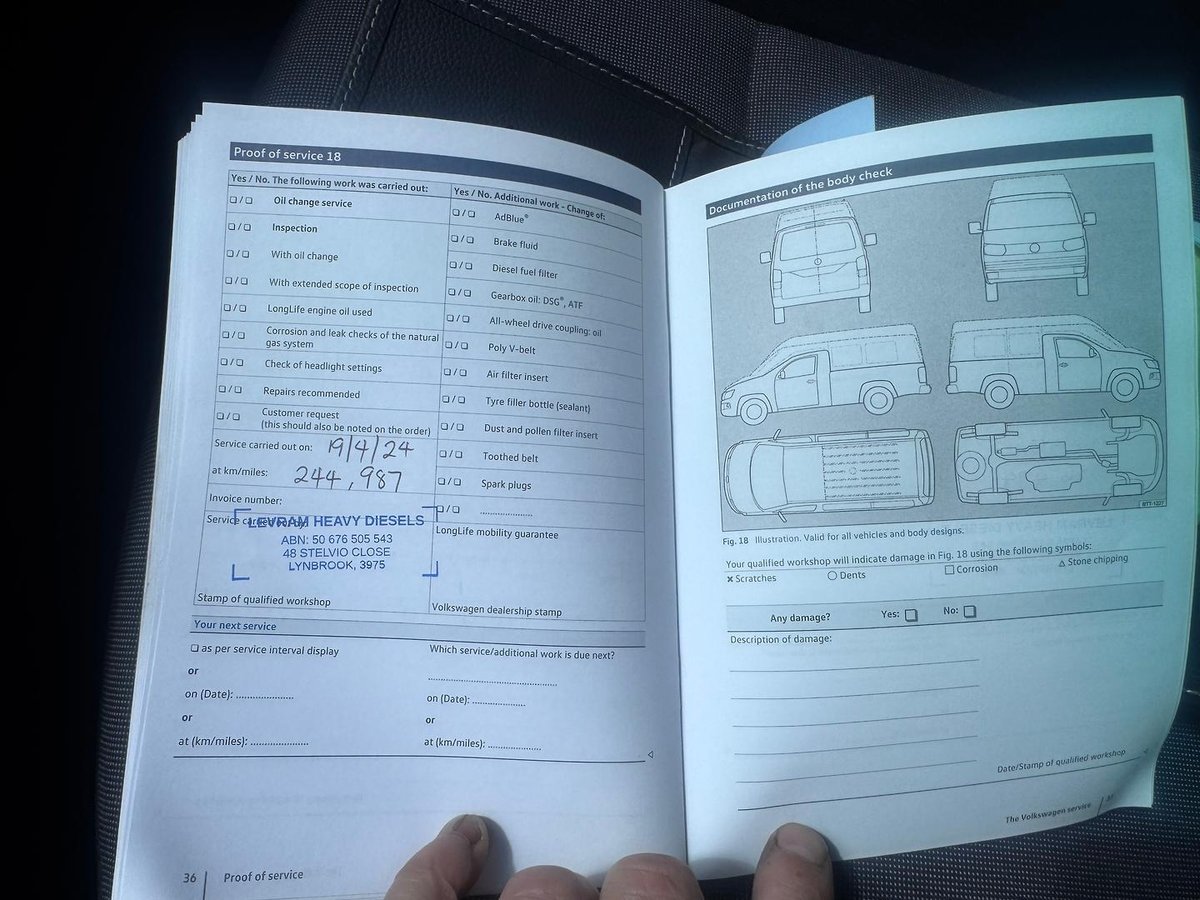 Proof of service 18
Yes / No. The following work was carried out:
❑ / ❑ Oil change service
❑ / ❑ Inspection
❑ / ❑ With oil change
❑ / ❑ With extended scope of inspection
❑ / ❑ LongLife engine oil used
❑ / ❑ Corrosion and leak checks of the natural
gas system
❑ / ❑ Check of headlight settings
❑ / ❑ Repairs recommended
❑ / ❑ Customer request
(this should also be noted on the order)
Service carried out on: 19/4/24
at km/miles: 244,987
Invoice number:
Service carried
LEVRAM HEAVY DIESELS
ABN: 50 676 505 543
48 STELVIO CLOSE
LYNBROOK, 3975
Stamp of qualified workshop
Yes / No. Additional work - Change of:
❑ / ❑ AdBlue®
❑ / ❑ Brake fluid
❑ / ❑ Diesel fuel filter
❑ / ❑ Gearbox oil: DSG®, ATF
❑ / ❑ All-wheel drive coupling: oil
❑ / ❑ Poly V-belt
❑ / ❑ Air filter insert
❑ / ❑ Tyre filler bottle (sealant)
❑ / ❑ Dust and pollen filter insert
❑ / ❑ Toothed belt
❑ / ❑ Spark plugs
❑ / ❑ ..................
LongLife mobility guarantee
Volkswagen dealership stamp
Your next service
❑ as per service interval display
or
on (Date): ....................
or
at (km/miles): ....................
Which service/additional work is due next?
.............................................
on (Date): ..................
or
at (km/miles): ..................
36 Proof of service
Documentation of the body check
Fig. 18 Illustration. Valid for all vehicles and body designs.
Your qualified workshop will indicate damage in Fig. 18 using the following symbols:
✖ Scratches ○ Dents □ Corrosion △ Stone chipping
Any damage? Yes: ❑ No: ❑
Description of damage:
Date/Stamp of qualified workshop
The Volkswagen service